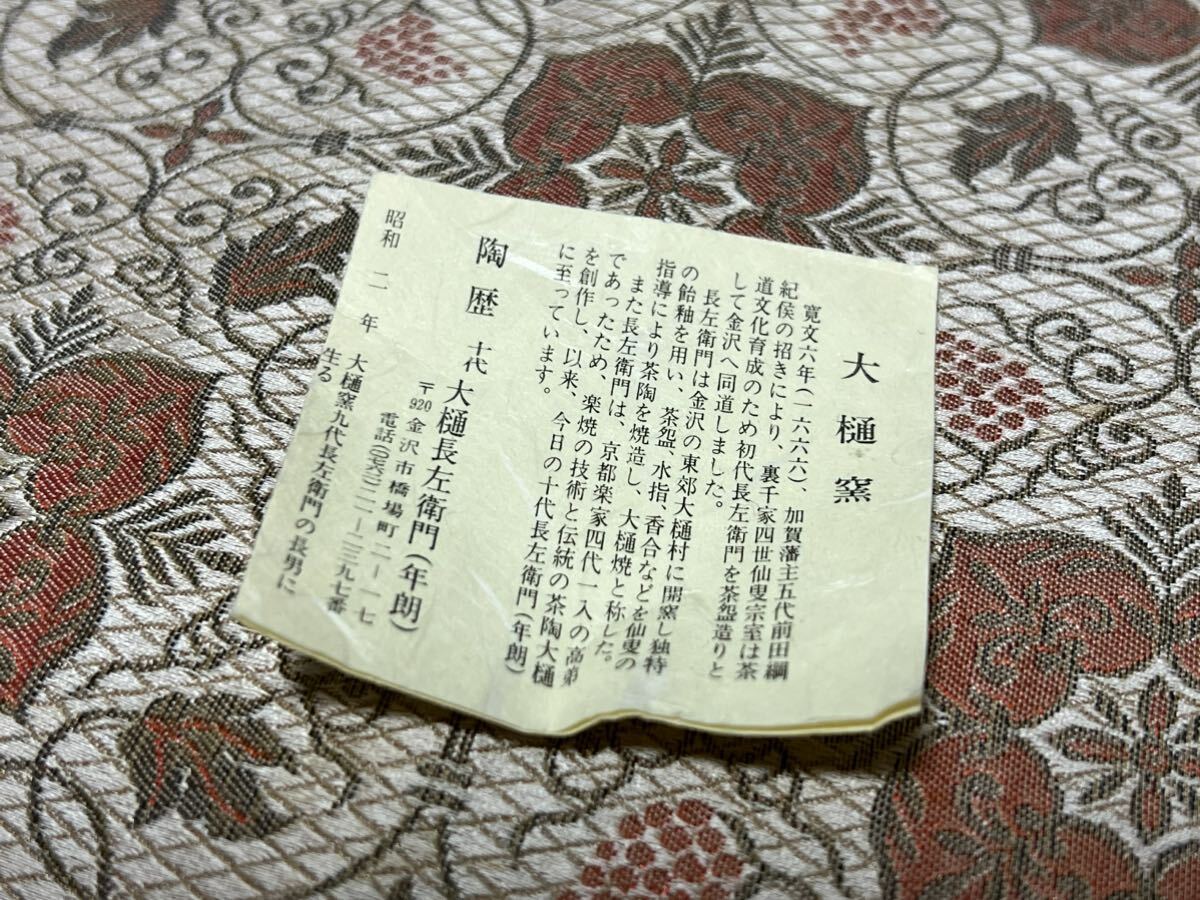 大樋窯
寛文六年(一六六六)、加賀藩主五代前田綱
紀侯の招きにより、裏千家四世仙叟宗室は茶
道文化育成のため初代長左衛門を茶盌造りと
して金沢へ同道しました。
長左衛門は金沢の東郊大樋村に開窯し独特
の飴釉を用い、茶盌、水指、香合などを仙叟の
指導により茶陶を焼造し、大樋焼と称した。
また長左衛門は、京都楽家四代一入の高弟
であったため、楽焼の技術と伝統の茶陶大樋
を創作し、以来、今日の十代長左衛門(年朗)
に至っています。
陶歴 十代 大樋長左衛門(年朗)
〒920 金沢市橋場町二ー一七
電話(〇七六二)二一ー二三九七番
昭和二年 大樋窯九代長左衛門の長男に
生る